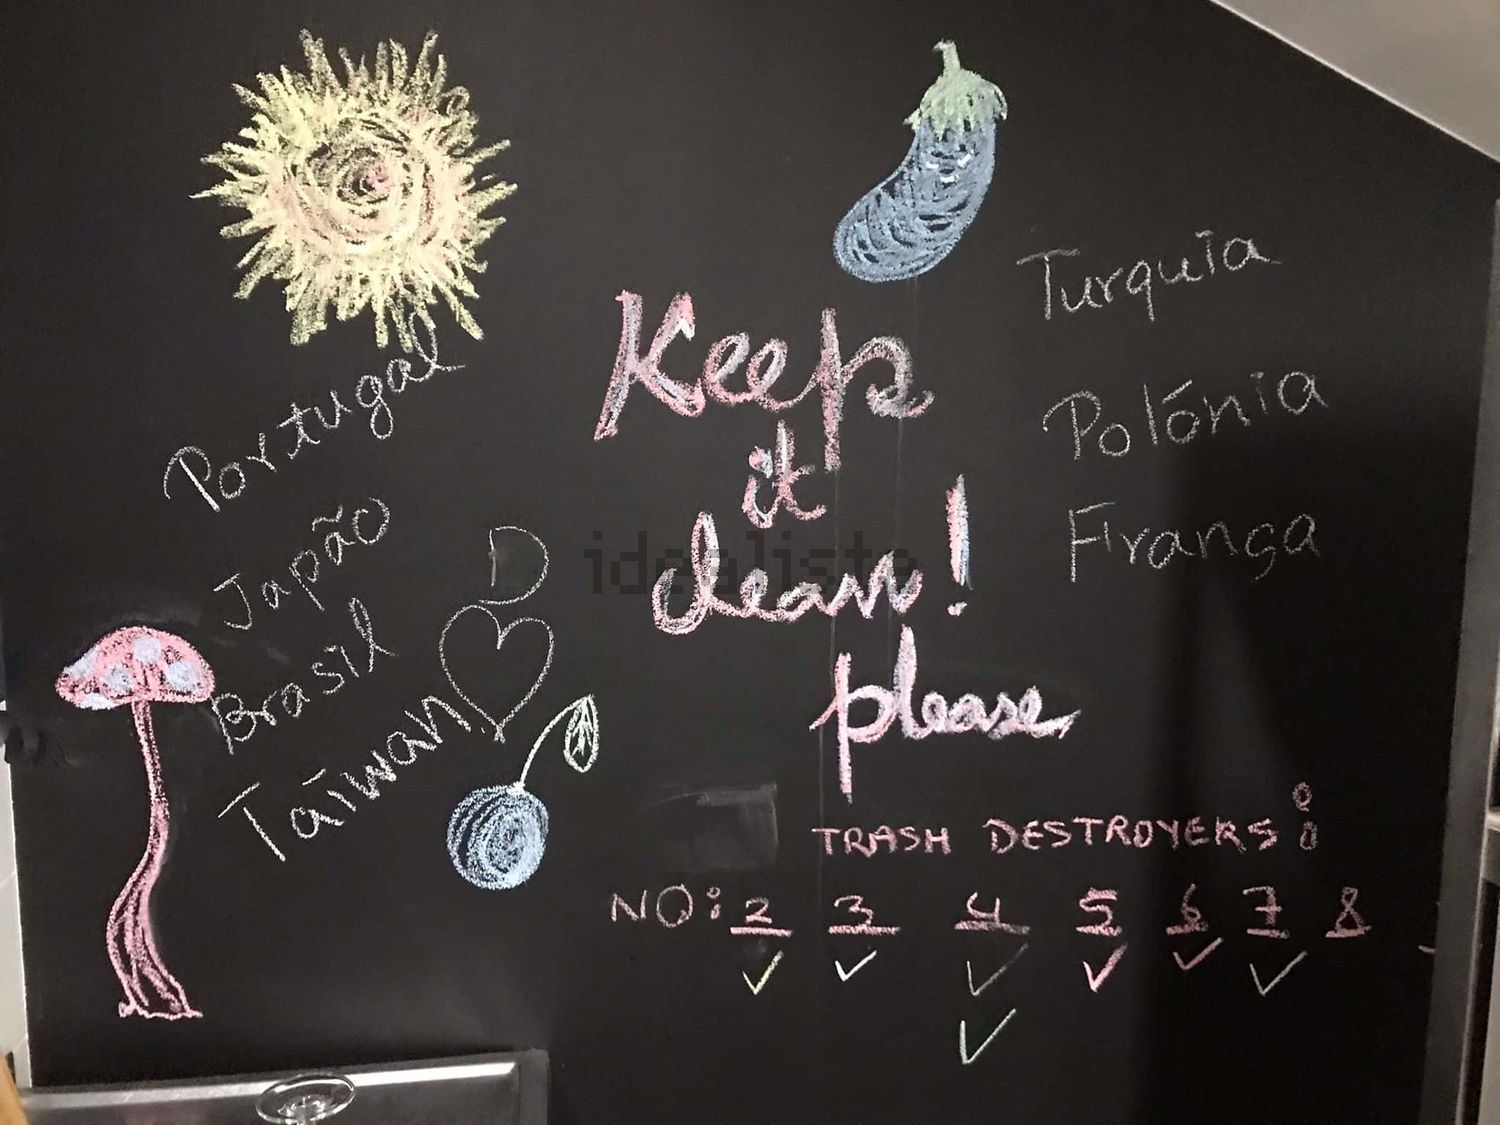 Portugal
Japão
Brasil
Taiwan
Keep
it
clean!
please
Turquia
Polónia
França
idealista
TRASH DESTROYERS:
NO: 2 3 4 5 6 7 8